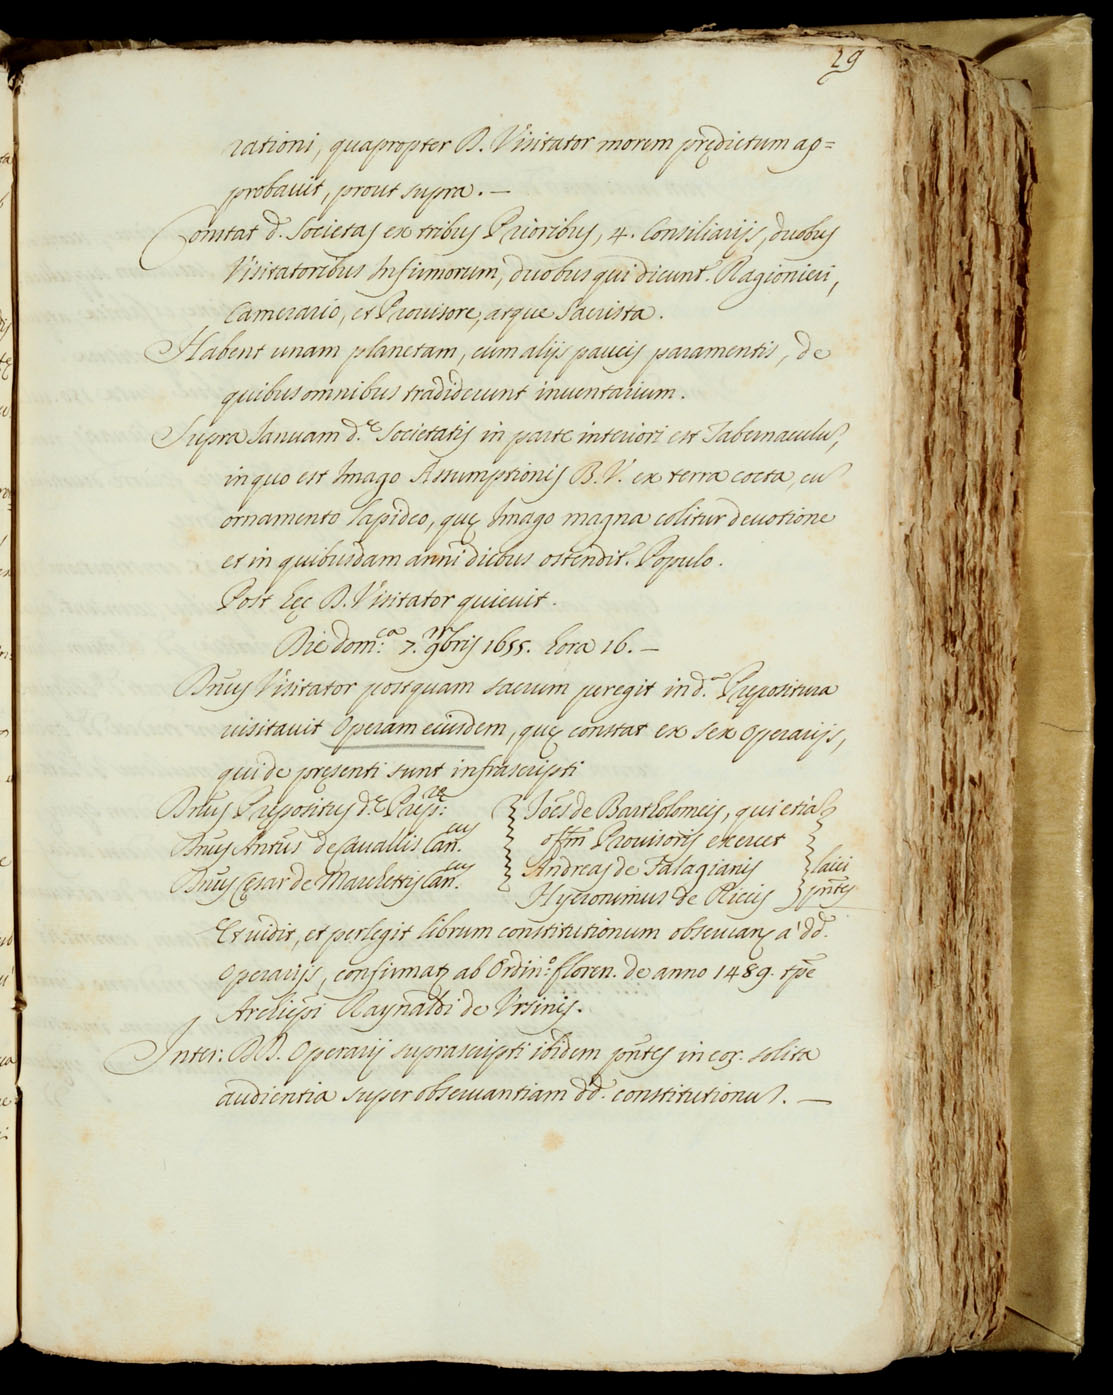 29
rationi, quapropter D. Visitator morem prędictum ap=
probavit, prout supra. —
Constat d. Societas ex tribus Prioribus, 4. Consiliarijs, duobus
Visitatoribus Infirmorum, duobus qui dicunt.r Ragionieri,
Camerario, et Provisore, atque Sacrista.
Habent unam planetam, cum alijs paucis paramentis, de
quibus omnibus tradiderunt inventarium.
Supra Ianuam d.ę Societatis in parte interiori est Tabernaculũ,
in quo est Imago Assumptionis B. V. ex terra cocta, cũ
ornamento lapideo, quę Imago magna colitur devotione
et in quibusdam anni diebus ostendit.r Populo.
Post hęc D. Visitator quievit.
Die dom:ca 7. 9mbris 1655. hora 16. —
Dnus Visitator postquam sacrum peregit in d.a Prępositura
visitavit Operam eiusdem, quę constat ex sex Operarijs,
qui de pręsenti sunt infrascripti
Dnus Prępositus d.ę Pręp:rę
Dnus Antus de Cavallis Can.cus
Dnus Cęsar de Marchettis Can.cus
Ioēs de Bartholomeis, qui etiã
offm Provisoris exercet
Andreas de Talagianis
Hyeronimus de Riccijs
laici
pntes
Et vidit, et perlegit librum constitutionum observarę à dd.
Operarijs, confirmatę ab Ordin:o floren. de anno 1489. tpē
Archiepi Raynaldi de Ursinis.
Inter: DD. Operarij suprascripti ibidem pntes in eor. solita
audientia super observantiam dd. constitutionũ. —